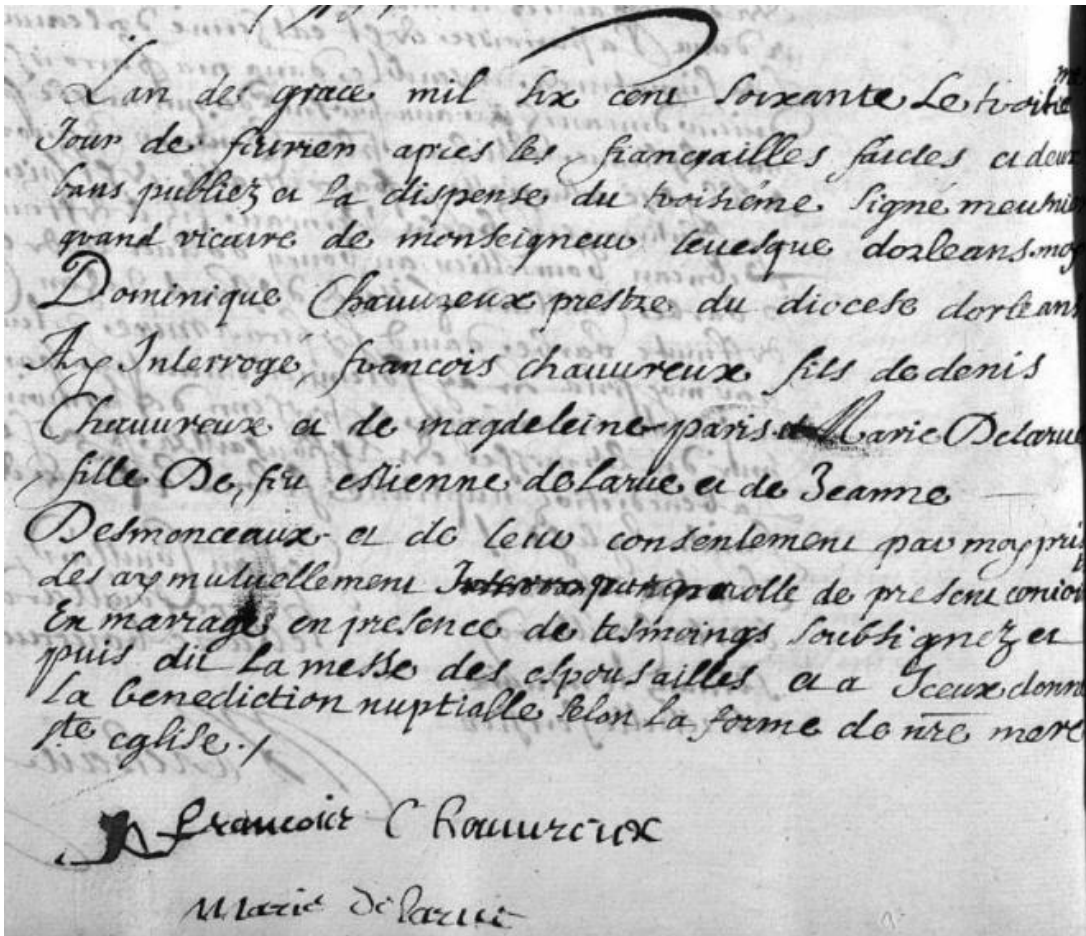 Lan de grace mil six cent soixante Le troisieme
Jour de feurier apres les fiançailles faictes et deux
bans publiez et la dispense du troisiéme signé meusnier
grand vicaire de monseigneur leuesque dorleans moy
Dominique Chauureux prestre du diocese dorleans
Ay Interrogé francois chauureux fils de denis
Chauureux et de magdeleine paris et Marie Delarue
fille De feu estienne delarue et de Jeanne
Desmonceaux et de leur consentement par moy pris
Les ay mutuellement parolle de present conioinct
En mariage en presence de tesmoings soubsignez et
puis dit La messe des espousailles et a Iceux donné
La benediction nuptialle selon La forme de nre mere
ste eglise ./
francois Chauureux
Marie Delarue